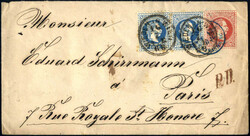 Monsieur
Eduard Schirmann
à
Paris
7 Rue Royale St. Honoré 7.
P.D.